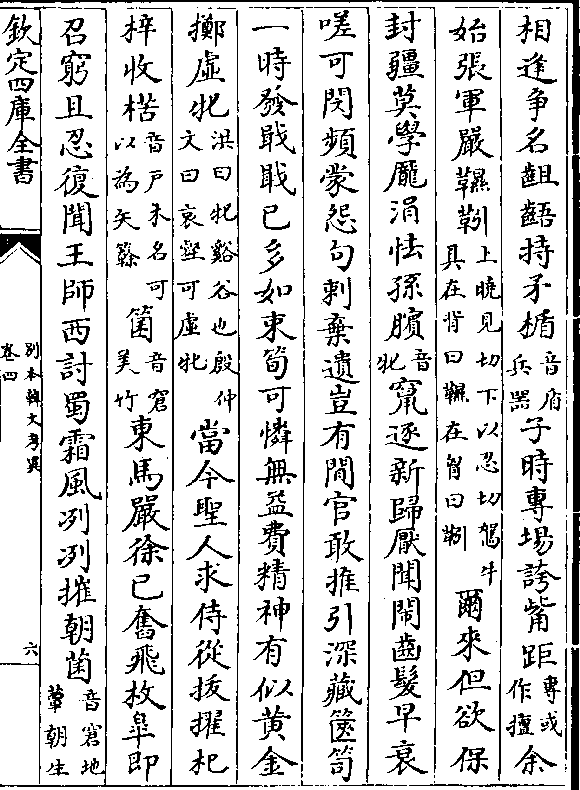 相逢争名齟齬持矛楯音盾兵器子時專場誇觜距專或作擅余
始張軍嚴韅靷上曉見切下以忍切駕牛具在背曰韅在胷曰靷爾來但欲保
封疆莫學龐涓怯孫臏音牝竄逐新歸厭聞閙齒髮早衰
嗟可閔頻蒙怨句刺棄遺豈有閒官敢推引深藏篋笥
一時發戢戢已多如束筍可憐無益費精神有似黄金
擲虛牝洪曰牝谿谷也殷仲文曰哀壑可虛牝當今聖人求侍從拔擢杞
梓收楛音戸木名可以為矢簳箘音窘美竹東馬嚴徐已奮飛枚臯即
召窮且忍復聞王師西討蜀霜風冽冽摧朝菌音窘地蕈朝生
欽定四庫全書
别本韓文考異
卷四
六